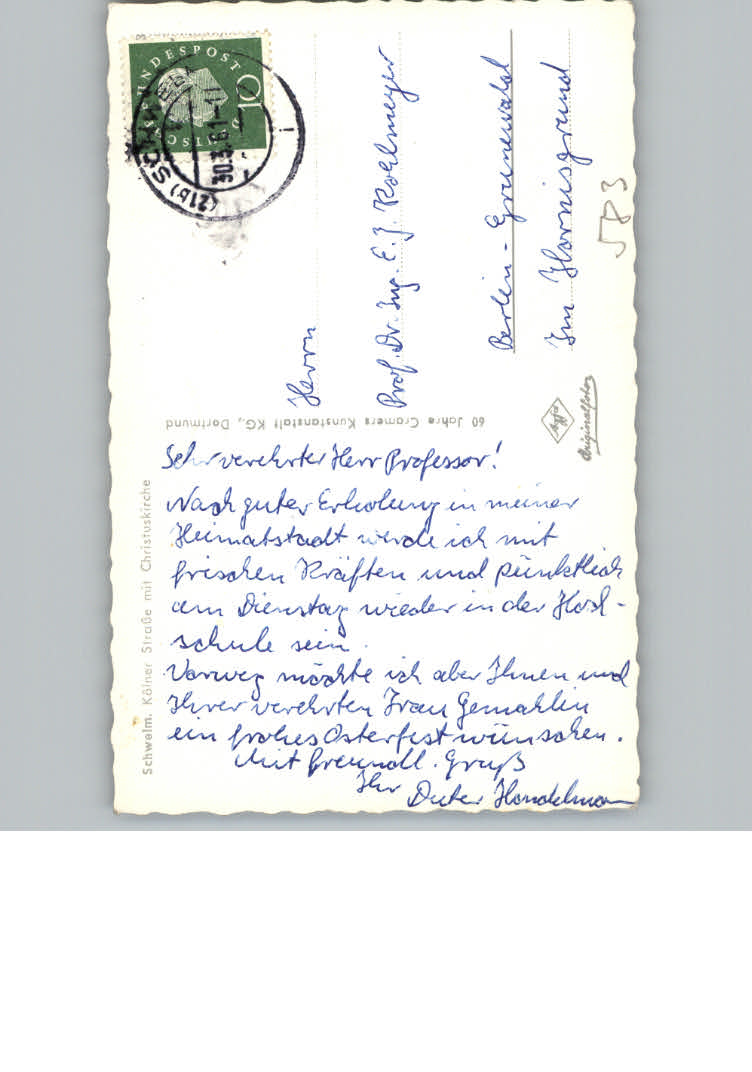 Sehr verehrter Herr Professor!
Nach guter Erholung in meiner
Heimatstadt werde ich mit
frischen Kräften und pünktlich
am Dienstag wieder in der Hoch-
schule sein.
Vorweg möchte ich aber Ihnen und
Ihrer verehrten Frau Gemahlin
ein frohes Osterfest wünschen.
Mit freundl. Gruß
Ihr Dieter
Schwelm. Kölner Straße mit Christuskirche
60 Jahre Cramers Kunstanstalt KG., Dortmund
Agfa
Originalfoto
DEUTSCHE BUNDESPOST
10
(21b) SCHWELM
30.3.61-17
Herrn
Prof. Dr. Ing. E. J. Kohlmeyer
Berlin - Grunewald
Im Hornisgrund
583